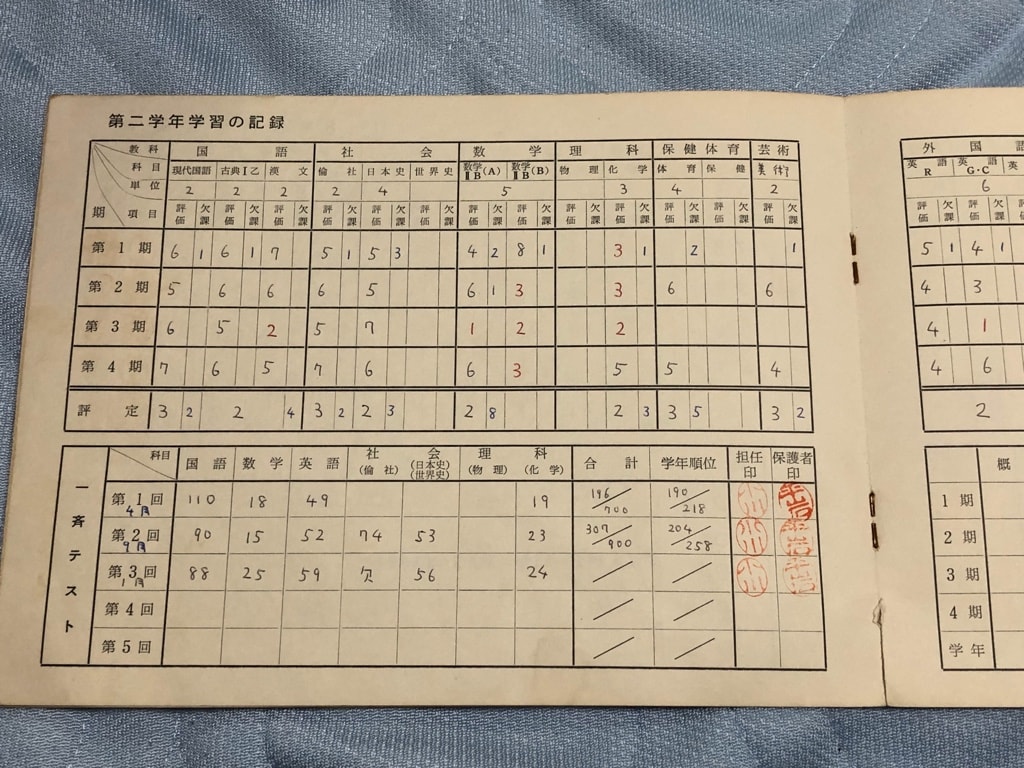 第二学年学習の記録
教科 国語 社会 数学 理科 保健体育 芸術 外国語
科目 現代国語 古典Ⅰ乙 漢文 倫社 日本史 世界史 数学ⅡB(A) 数学ⅡB(B) 物理 化学 体育 保健 美術 英語R 英語G・C 英
単位 2 2 2 2 4 5 3 4 2 6
期 項目 評価 欠課 評価 欠課 評価 欠課 評価 欠課 評価 欠課 評価 欠課 評価 欠課 評価 欠課 評価 欠課 評価 欠課 評価 欠課 評価 欠課 評価 欠課 評価 欠課 評価 欠課 評価
第1期 6 1 6 1 7 5 1 5 3 4 2 8 1 3 1 2 1 5 1 4 1
第2期 5 6 6 6 5 6 1 3 3 6 6 4 3
第3期 6 5 2 5 7 1 2 2 4 1
第4期 7 6 5 7 6 6 3 5 5 4 4 6
評定 3 2 2 4 3 2 2 3 2 8 2 3 3 5 3 2 2
一斉テスト
科目 国語 数学 英語 社会 (倫社) (日本史) (世界史) 理科 (物理) (化学) 合計 学年順位 担任印 保護者印 概
第1回 4月 110 18 49 19 196/700 190/218 1期
第2回 9月 90 15 52 74 53 23 307/900 204/258 2期
第3回 1月 88 25 59 欠 56 24 / / 3期
第4回 / / 4期
第5回 / / 学年